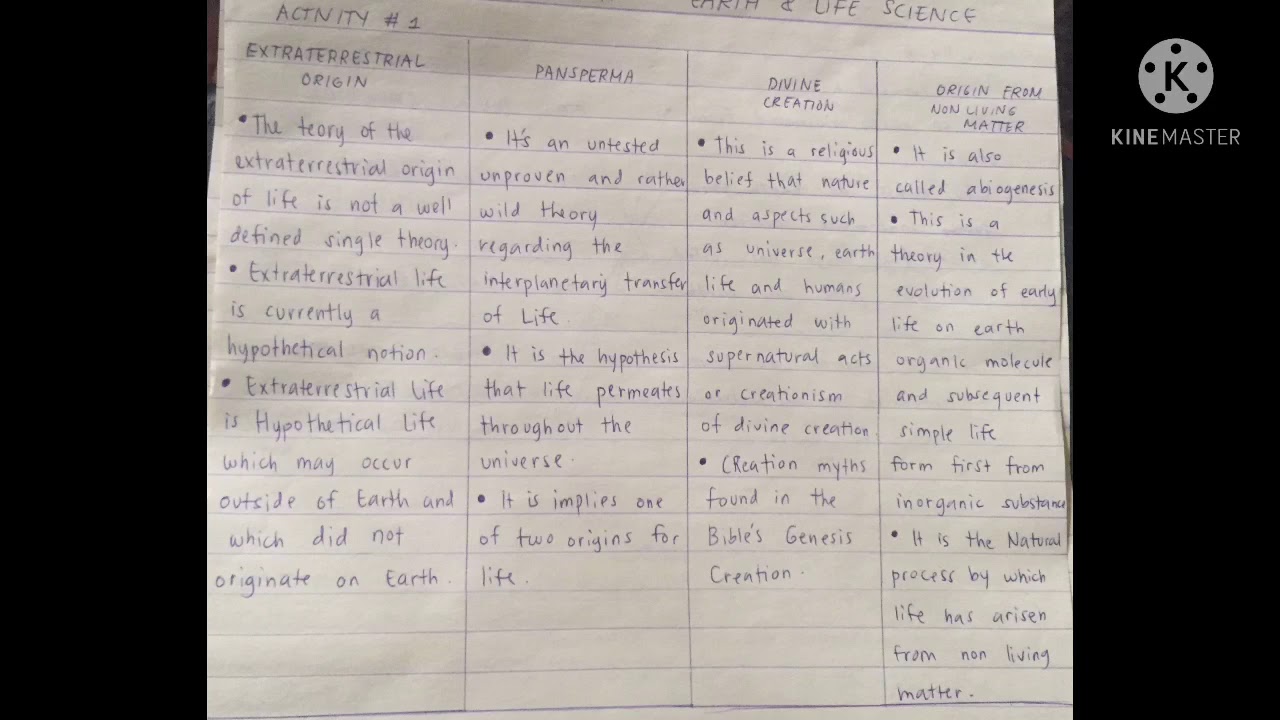 EARTH & LIFE SCIENCE
ACTIVITY #1
EXTRATERRESTRIAL
ORIGIN
• The teory of the
extraterrestrial origin
of life is not a well
defined single theory.
• Extraterrestrial life
is currently a
hypothetical notion.
• Extraterrestrial Life
is Hypothetical Life
which may occur
outside of Earth and
which did not
originate on Earth.
PANSPERMA
• It's an untested
unproven and rather
wild theory
regarding the
interplanetary transfer
of Life.
• It is the hypothesis
that life permeates
throughout the
universe.
• It is implies one
of two origins for
life.
DIVINE
CREATION
• This is a religious
belief that nature
and aspects such
as universe, earth
life and humans
originated with
supernatural acts
or creationism
of divine creation
• CReation myths
found in the
Bible's Genesis
Creation.
ORIGIN FROM
NON LIVING
MATTER
• It is also
called abiogenesis
• This is a
theory in the
evolution of early
life on earth
organic molecule
and subsequent
simple life
form first from
inorganic substance
• It is the Natural
process by which
life has arisen
from non living
matter.
K
KINEMASTER